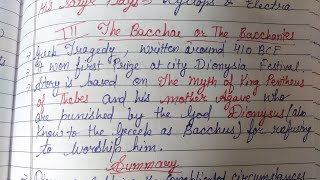 His Satyr Plays → Cyclops & Electra
III The Bacchae or The Bacchantes
→ Greek Tragedy, written around 410 BCE
→ It won first Prize at city Dionysia Festival.
→ Story is based on The Myth of King Pentheus
of Thebes and his mother Agave who
are punished by the God Dionysus (also
know to the Greeks as Bacchus) for refusing
to worship him.
Summary
the